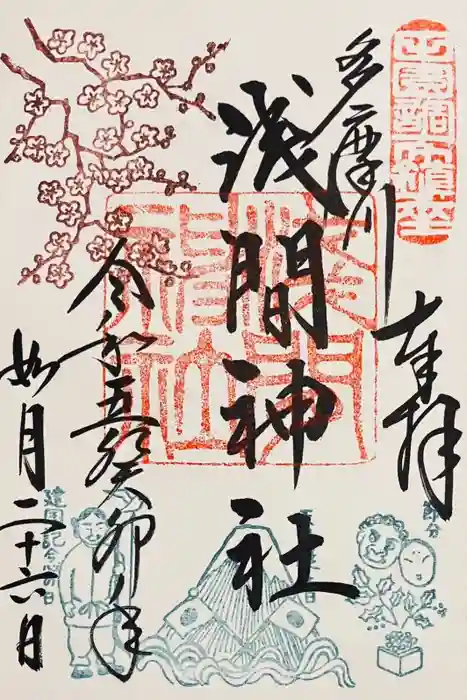 奉拝
多摩川
浅間神社
淺間
神社
令和五癸卯年
如月二十六日
節分
建国記念の日